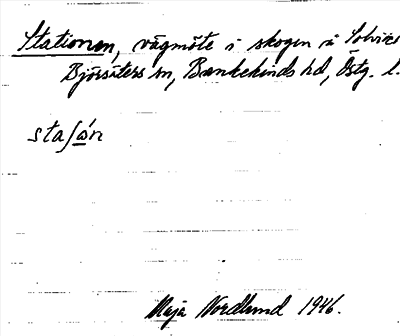 Stationen, vägmöte i skogen å Solviks
Björsäters sn, Bankekinds hd, Östg. l.
staʃὼn
Maja Nordlund 1946.